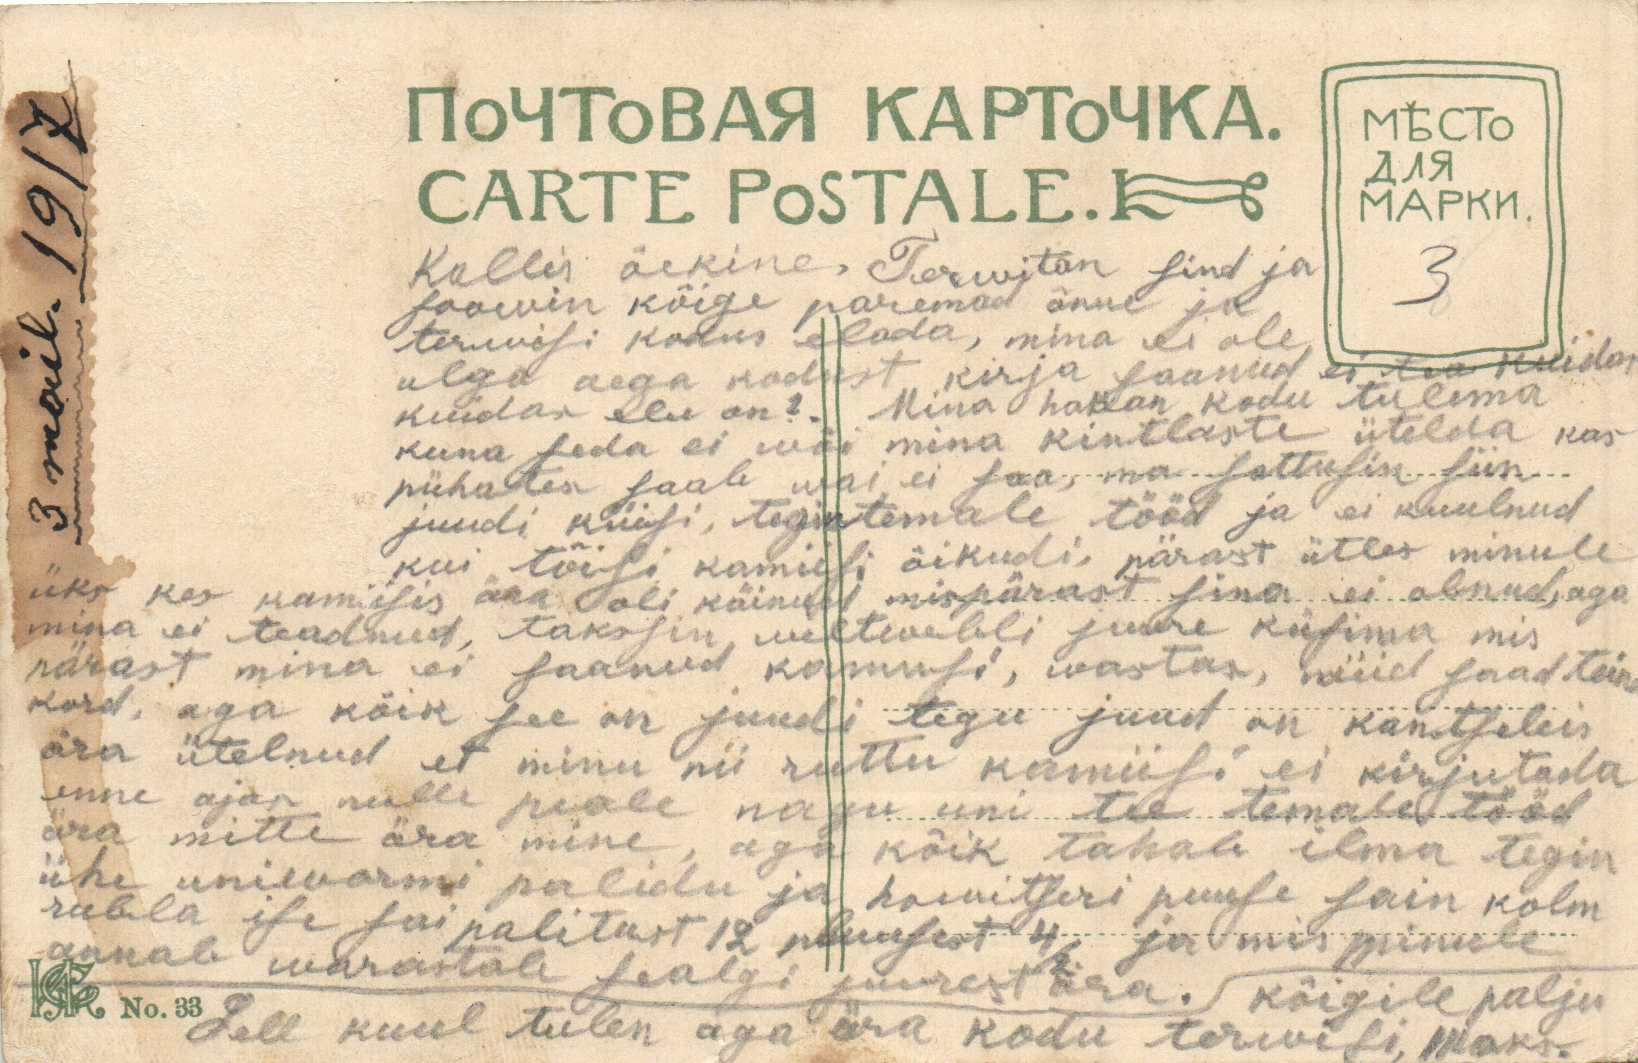 3 mail. 1917
ПОЧТОВАЯ КАРТОЧКА.
CARTE POSTALE.
МѢСТО
ДЛЯ
МАРКИ.
3
Kallis õekine, Terwitan sind ja
soowin kõige paremad õnne ja
terwisi kodus elada, mina ei ole
ulga aega kodust kirja saanud ei tea kuidas
kuidas elu on?. Mina hakan kodu tulema
kuna seda ei wõi mina kintlaste ütelda kas
pühates saab wai ei saa, ma sattusin siin
juudi küüsi, tegin temale tööd ja ei kuulnud
kui tõisi kamiisi õikudi, pärast ütles minule
üks kes kamiisis ära oli käinud mispärast sina ei olnud, aga
mina ei teadnud, takssin weltwebli juure küsima mis
pärast mina ei saanud kamiisi, wastas, nüid saad teine
kord, aga kõik see on juudi tegu juud on kantseleis
ära ütelnud et minu nii ruttu kamiisi ei kirjutada
enne ajas mulle peale nagu uni tee temale tööd
ära mitte ära mine, aga kõik tahab ilma tegin
ühe uniwormi palidu ja howitseri puuse sain kolm
rubla ise sai palitust 12 pluusest 4 ja mis minule
annab warastab sealgi juurest ära.
kõigile palju
Sell kuul tulen aga ära kodu terwisi, Maks.
No. 33